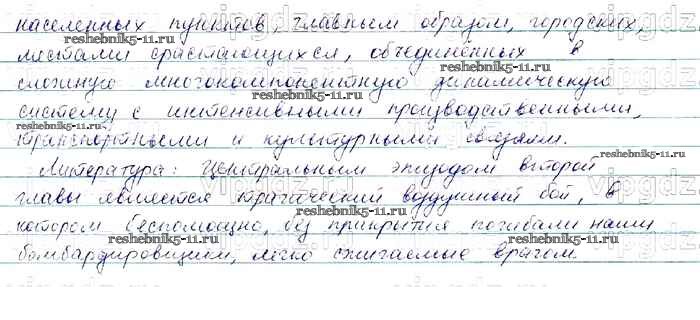 населенных пунктов, главным образом, городских,
местами срастающихся, объединенных в
reshebnik5-11.ru
reshebnik5-11.ru
сложную многокомпонентную динамическую
reshebnik5-11.ru
систему с интенсивными производственными,
reshebnik5-11.ru
транспортными и культурными связями.
reshebnik5-11.ru
Литература: Центральным эпизодом второй
главы является трагический воздушный бой, в
reshebnik5-11.ru
котором беспомощно, без прикрытия погибали наши
reshebnik5-11.ru
reshebnik5-11.ru
бомбардировщики, легко сжигаемые врагом